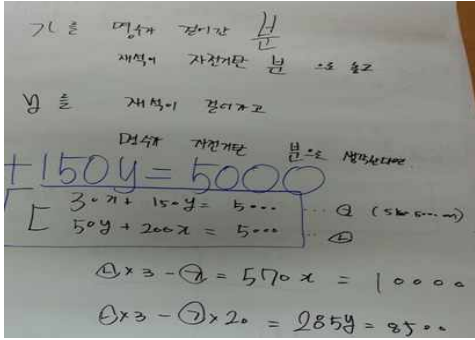 기를 명수가 걸어간 분
재석이 자전거탄 분 으로 놓고
y를 재석이 걸어가고
명수가 자전거탄 분으로 생각한다면
+150y=5000
30x+ 150y= 5000 ... ㉠ (5km 5000m)
50y+200x = 5000 ... ㉡
㉡x3-㉠=570x=10000
㉡x3-㉠x20=285y=8500